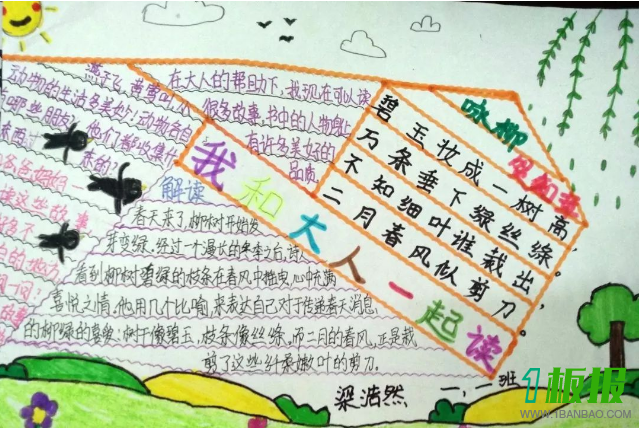 我和大人一起读
咏柳
贺知章
碧玉妆成一树高,
万条垂下绿丝绦。
不知细叶谁裁出,
二月春风似剪刀。
在大人的帮助下,我现在可以读
很多故事,书中的人物身上
有许多美好的
品质。
动物的生活多美妙!动物各自
他们都迷什
解读
春天来了,柳树开始发
芽变绿,经过一个漫长的冬季之后,诗人
看到柳树碧绿的枝条在春风中摇曳,心中充满
喜悦之情,他用几个比喻,来表达自己对于传递春天消息
的柳绿的喜爱:树干像碧玉,枝条像丝绦,而二月的春风,正是裁
剪了这些纤柔嫩叶的剪刀。
梁浩然
一.一班
1板报
WWW.1BANBAO.COM